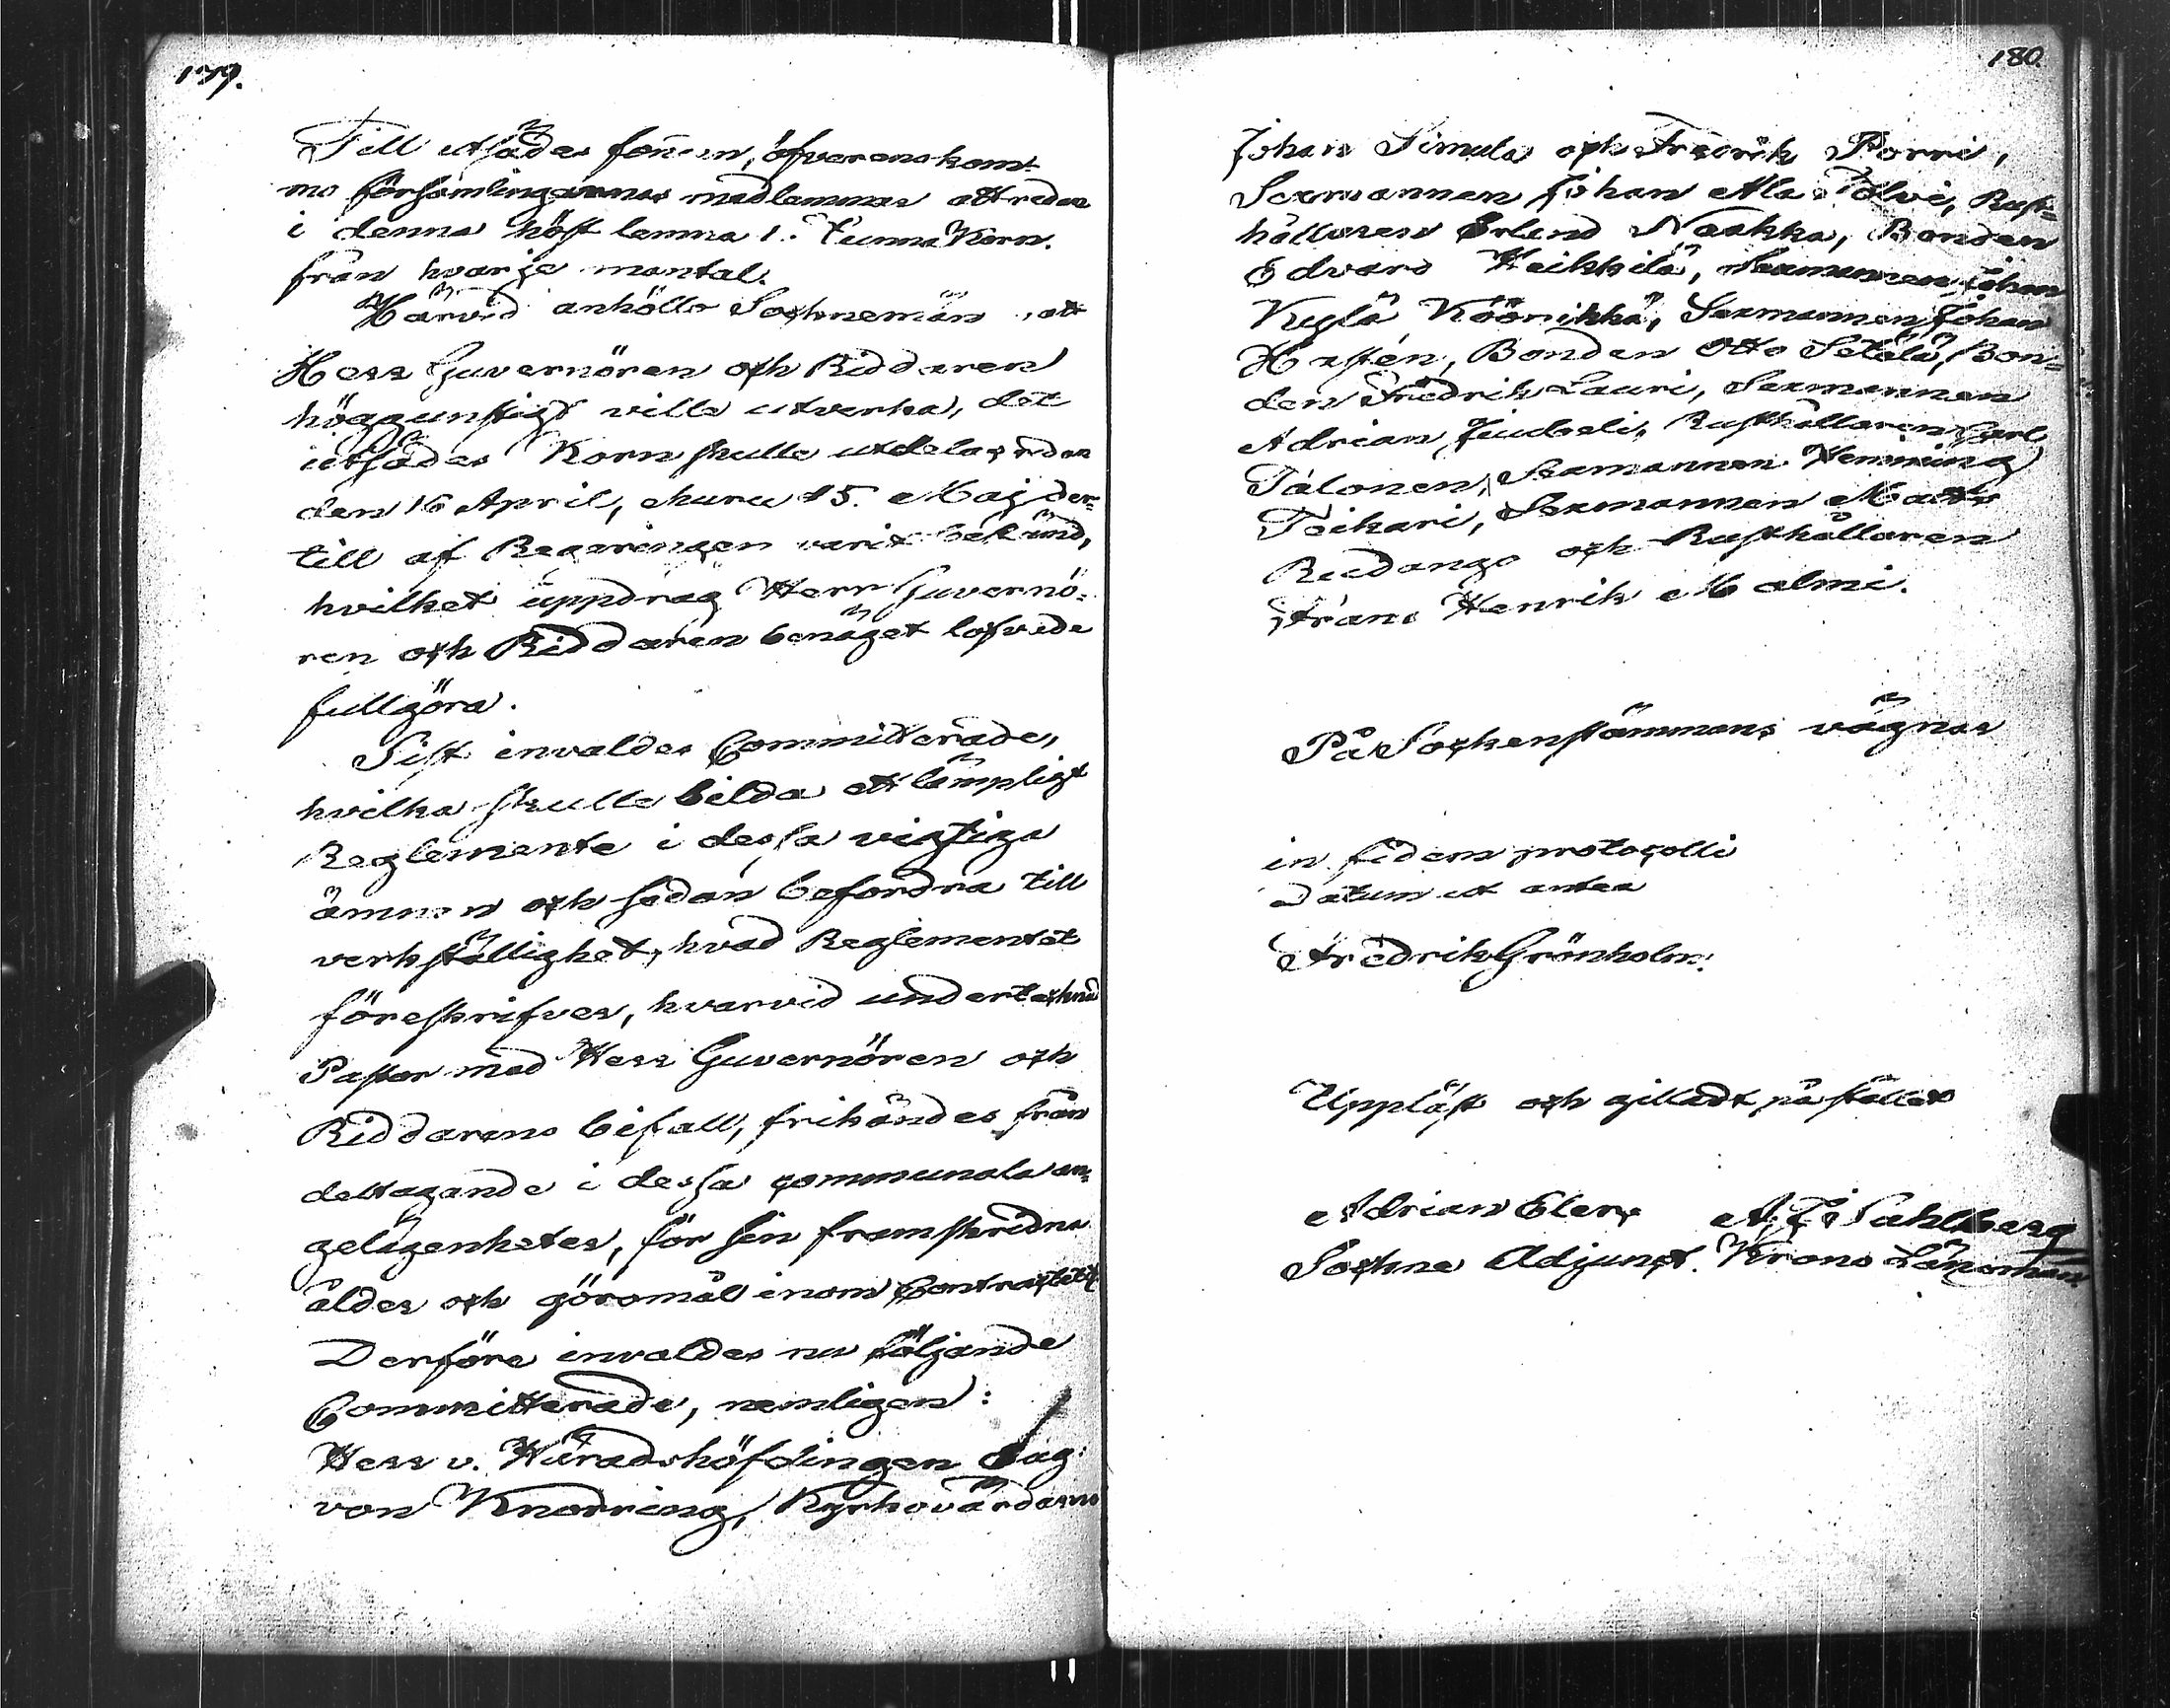 179.
Till utsädes fonden, öfverenskom-
mo församlingarnas medlemmar att redan
i denna höst lemna 1. Tunna Korn.
från hvarje mantal.
Härvid anhöllo Socknemän, att
Herr Guvernören och Riddaren
höggunstigt ville utverka, det
utsädes Korn skulle utdelas redan
den 16 April, churu 15. Maj der-
till af Regeringen varit bestämd,
hvilket uppdrag Herr Guvernö-
ren och Riddaren benäget lofvade
fullgöra.
Sist invaldes Committerade,
hvilka skulle bilda ett lämpligt
Reglemente i dessa vigtiga
ämnen och sedan befordra till
verkställighet, hvad Reglementet
föreskrifver, hvarvid undertecknad
Pastor med Herr Guvernören och
Riddarens bifall, frikändes från
deltagande i dessa communala an-
gelägenheter, för sin framskridna
ålder och göromål inom Contractet.
Derföre invaldes nu följande
Committerade, nemligen:
Herr v. Häradshöfdingen Aug:
von Knorring, Kyrkovärdarne
180.
Johan Simula och Fredrik Porri,
Sexmannen Johan Ala Tolvi, Rust-
hållaren Erland Naakka, Bonden
Edvard Heikkilä, Sexmannen Johan
Kylä Köörikkä, Sexmannen Johan
Hastén, Bonden Otto Setälä, Bon-
den Fredrik Lauri, Sexmannen
Adrian Juuseli, Rusthållaren Carl
Talonen, Sexmannen Henning
Teikari, Sexmannen Matts
Rudango och Rusthållaren
Frans Henrik Malmi.
På Sockenstämmans vägnar
in fidem protocolli
datum ut antea
Fredrik Grönholm.
Uppläst och gilladt på stället
Adrian Elers A. J. Sahlberg
Sockne Adjunct. Krono Länsman.